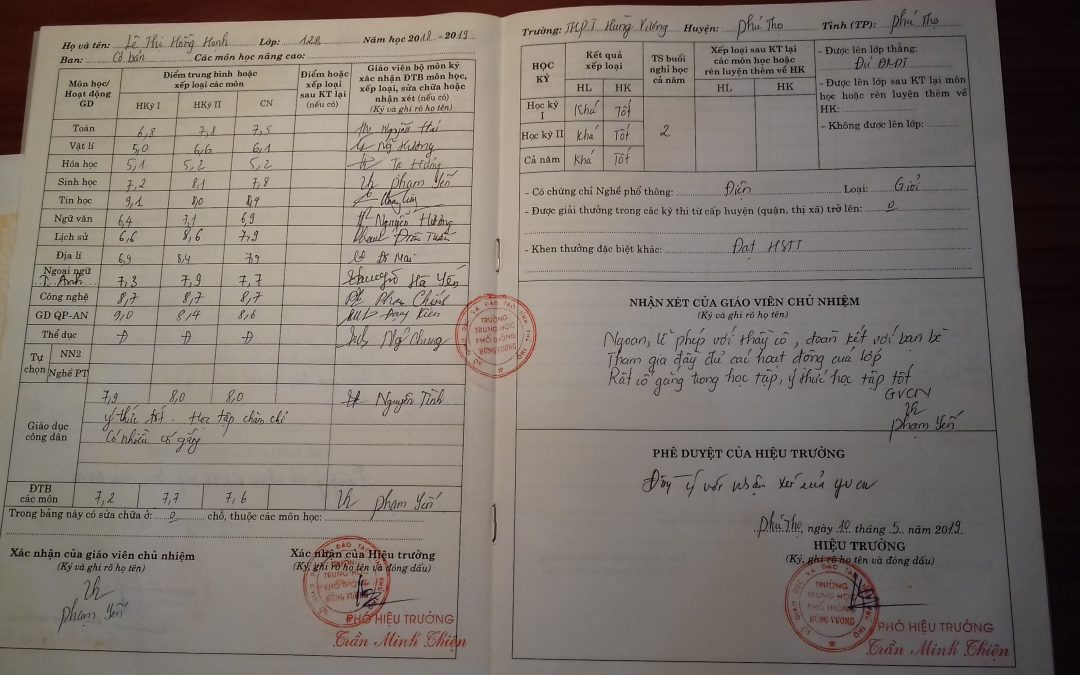 Họ và tên: Lê Thị Hồng Hạnh Lớp: 12B Năm học 2018 - 2019
Ban: Cơ bản Các môn học nâng cao:
Môn học/ Hoạt động GD
Điểm trung bình hoặc xếp loại các môn
HKỳ I HKỳ II CN
Điểm hoặc xếp loại sau KT lại (nếu có)
Giáo viên bộ môn ký xác nhận ĐTB môn học, xếp loại, sửa chữa hoặc nhận xét (nếu có)
(Ký và ghi rõ họ tên)
Toán 6,8 7,8 7,5 Nguyễn Hải
Vật lí 5,0 6,6 6,1 Ng Hương
Hóa học 5,1 5,2 5,2 Tạ Hương
Sinh học 7,2 8,1 7,8 Phạm Yến
Tin học 9,1 8,0 8,4
Ngữ văn 6,4 7,1 6,9 Nguyễn Hương
Lịch sử 6,6 8,6 7,9 Trần Tuấn
Địa lí 6,9 8,4 7,9 Đỗ Mai
Ngoại ngữ
T. Anh 7,3 7,9 7,7 Hà Yến
Công nghệ 8,7 8,7 8,7 Phan Chính
GD QP-AN 9,0 8,4 8,6 Kiên
Thể dục Đ Đ Đ Ng Chung
Tự chọn NN2
Nghề PT
Giáo dục công dân 7,9 8,0 8,0 Nguyễn Tình
Ý thức tốt. Học tập chăm chỉ
Có nhiều cố gắng
ĐTB các môn 7,2 7,7 7,6 Phạm Yến
Trong bảng này có sửa chữa ở: 0 chỗ, thuộc các môn học:
Xác nhận của giáo viên chủ nhiệm
(Ký và ghi rõ họ tên)
Phạm Yến
Xác nhận của Hiệu trưởng
(Ký, ghi rõ họ tên và đóng dấu)
TRUNG HỌC
PHỔ THÔNG
HÙNG VƯƠNG
PHÓ HIỆU TRƯỞNG
Trần Minh Thiện
SỞ GIÁO DỤC VÀ ĐÀO TẠO TỈNH PHÚ THỌ
TRƯỜNG
TRUNG HỌC
PHỔ THÔNG
HÙNG VƯƠNG
Trường: THPT Hùng Vương Huyện: Phú Thọ Tỉnh (TP): Phú Thọ
HỌC KỲ
Kết quả xếp loại
HL HK
TS buổi nghỉ học cả năm
Xếp loại sau KT lại các môn học hoặc rèn luyện thêm về HK
HL HK
Học kỳ I Khá Tốt
Học kỳ II Khá Tốt 2
Cả năm Khá Tốt
- Được lên lớp thẳng:
- Được lên lớp sau KT lại môn học hoặc rèn luyện thêm về HK:
- Không được lên lớp:
- Có chứng chỉ Nghề phổ thông: Điện Loại: Giỏi
- Được giải thưởng trong các kỳ thi từ cấp huyện (quận, thị xã) trở lên: 0
- Khen thưởng đặc biệt khác: Đạt HSTT
NHẬN XÉT CỦA GIÁO VIÊN CHỦ NHIỆM
(Ký và ghi rõ họ tên)
Ngoan, lễ phép với thầy cô, đoàn kết với bạn bè
Tham gia đầy đủ các hoạt động của lớp
Rất cố gắng trong học tập, ý thức học tập tốt
GVCN
Phạm Yến
PHÊ DUYỆT CỦA HIỆU TRƯỞNG
Đồng ý với nhận xét của gvcn
Phú Thọ, ngày 10 tháng 5 năm 2019
HIỆU TRƯỞNG
(Ký, ghi rõ họ tên và đóng dấu)
TRƯỜNG
TRUNG HỌC
PHỔ THÔNG
HÙNG VƯƠNG
PHÓ HIỆU TRƯỞNG
Trần Minh Thiện